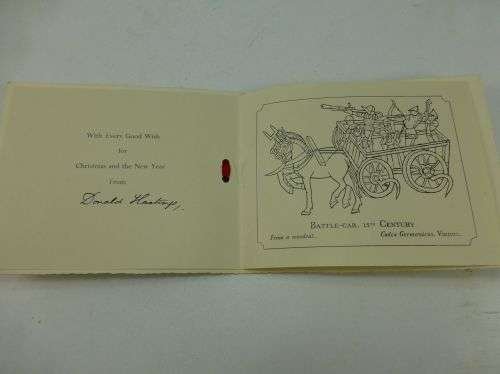 With Every Good Wish
for
Christmas and the New Year
From
Donald Hastings,
BATTLE-CAR, 15TH CENTURY
From a woodcut.
Codex Germanicus, Vienna.